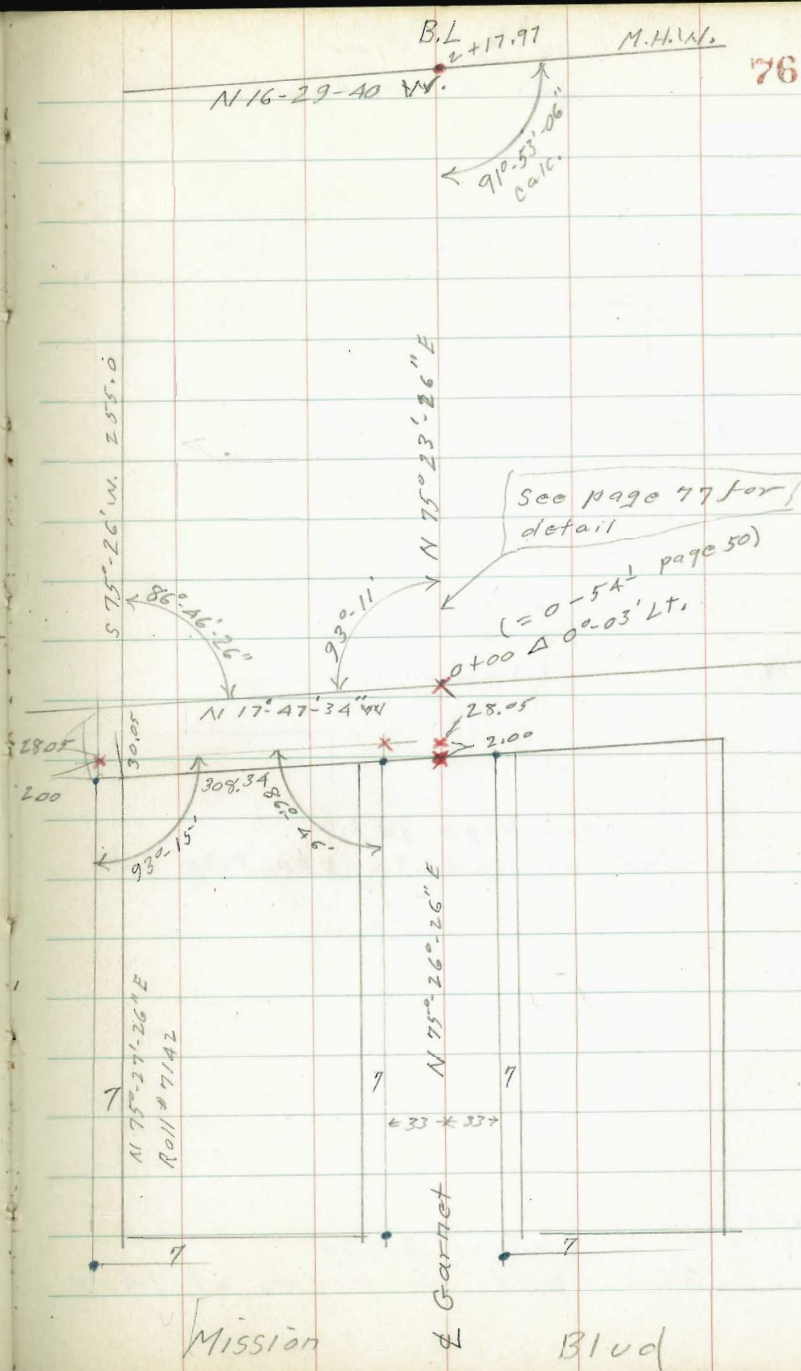 B.L
2+17.97
M.H.W.
76
N 16-29-40 W.
91°-53'-06"
calc.
S 75°-26' W. 255.0
N 75° 23'-26" E
See page 77 for
detail
(= 0-54' page 50)
0+00 Δ 0°-03' Lt.
86°-46'-26"
93°-11'
N 17°-47'-34" W
28.05
2.00
28.05
2.00
30.05
308.34
93°-15'
86°-46'
N 75°-27'-26" E
Roll # 7142
N 75°-26'-26" E
7
7
7
←33 * 33→
℄ Garnet
7
7
Mission
Blvd